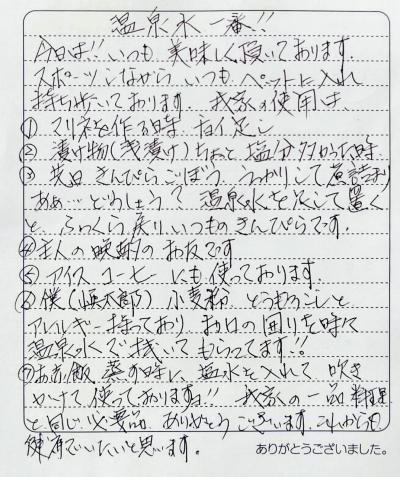 温泉水一番!!
今日は!! いつも 美味しく頂いております。
スポーツしながら いつも ペットに入れ
持ち歩いております. 我家の使用は
① マリネを作る時 ちょい足し
② 漬け物(浅漬け) ちょっと 塩分多かった時
③ 先日 きんぴらごぼう. うっかりして 煮詰まり
あぁ…どうしよう? 温泉水を 入して置く
と ふっくら戻り. いつものきんぴらです.
④ 主人の晩酌のお友です.
⑤ アイス コーヒーにも使っております.
⑥ 僕(慎太郎) 小麦粉 とうもろこしと
アレルギー持っており お口の囲りを時々
温泉水で拭いてもらってます!!
⑦ お赤飯 蒸す時に 塩水を入れて 吹き
かけて使っております!! 我家の一品 料理
と同じ必要品. ありがとうございます. これからも
でいたいと思います。
ありがとうございました。